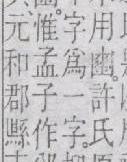 用豳許氏
字爲一字
惟孟子作
元和郡縣